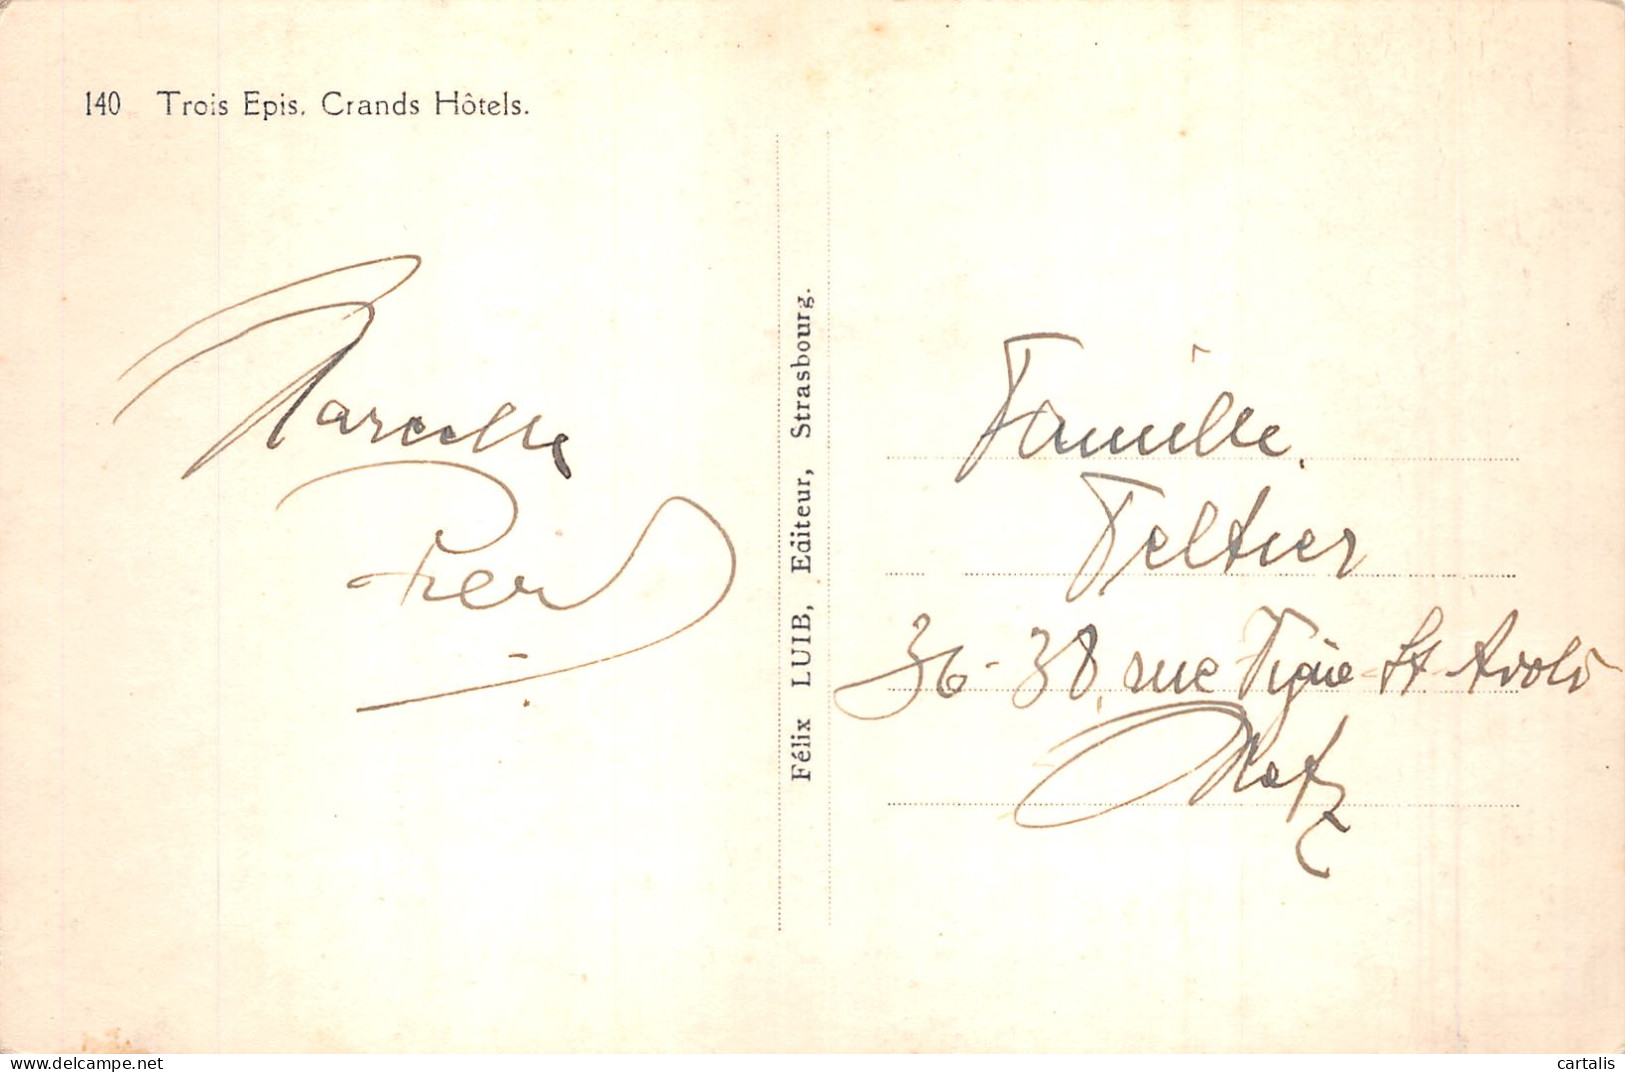 140 Trois Epis. Grands Hôtels.
Marcelle
Félix LUIB, Editeur, Strasbourg.
Famille
Peltier
36-38, rue Vigne-St-Avold
Metz
cartalis